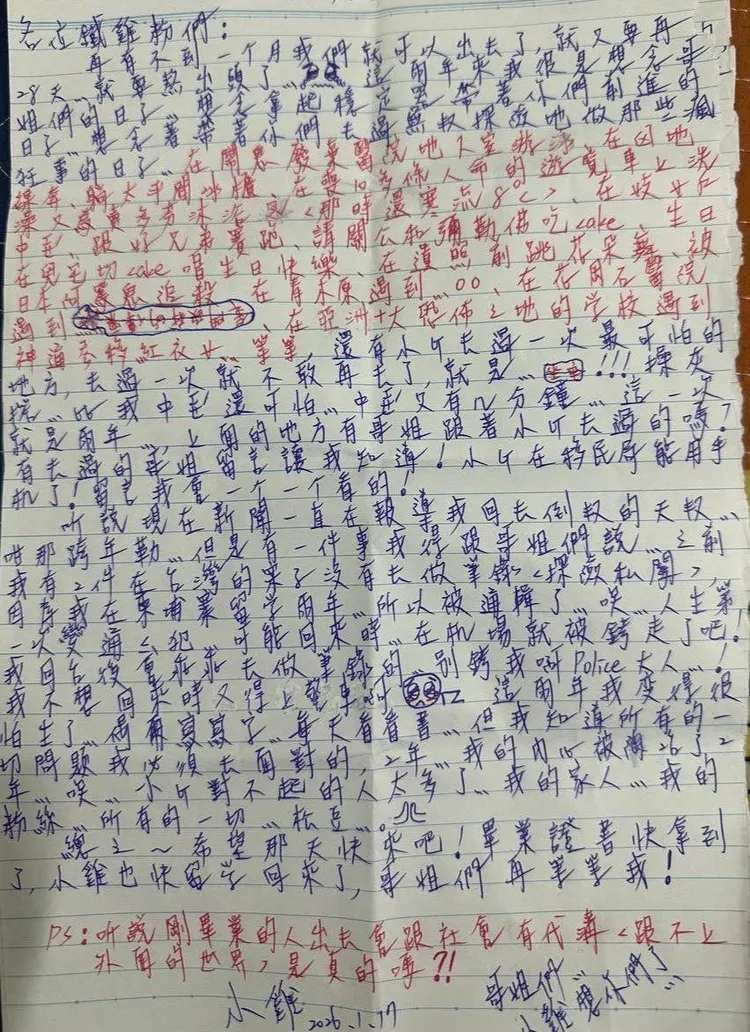 各位鐵雞粉們：
再有不到一个月我們就可以出去了，就又要再
28天…就要熬出頭了…這兩年來我很是想念哥
姐們的日子…想念拿起穩定器帶著你們前進的
日子…想念著帶著你們去過無數探險地做那些瘋
狂事的日子…在關愚發棄醫院地下室游泳、在凶地
祼奔、躺太平間冰櫃、在靈10多條人命的遊覽車上洗
澡又被賣身洗浴<那時還寒流8°C>、在妓女户
中邪、跟好兄弟賽跑、請關公和彌勒佛吃cake、生日
在鬼宅切cake唱生日快樂、在遺照前跳花朵舞、被
日本阿飄鬼追殺、在青木原遇到…00、在花岡石醫院
遇到、在亞洲十大恐佈之地的学校遇到
神道恭移紅衣女…等等，還有小ㄚ去過一次最可怕的
地方，去過一次就不敢再去了，就是…!!! 操灰
挠…比我中邪還可怕…中邪又有几分鐘…這一次
就是兩年…，上面的地方有哥姐跟著小ㄚ去過的嗎?
有去過的哥姐留言讓我知導！小ㄚ在移民局能用手
机了！留言我會一个一个看的！
听說現在新聞一直在報導我回去倒数的天数…
咁那跨年勒…但是有一件事我得跟哥姐們說…之前
我有2件在台灣的案子沒有去做筆錄<探險私闖>，
因存我在柬埔寨留学兩年…所以被通緝了…唉…人生第
一次变通緝犯…可能回來時…在机場就被銬走了吧！
我回台後會乖乖去做筆錄的…别銬我啊Police大人…！
我不想回來時又得上警車…這兩年我变得很
怕生了…偶爾寫寫字…每天看看書…但我知道所有的一
切問題我必須去面對的，2年…我的内心被陶冶了2
年…唉…小ㄚ對不起的人太多了…我的家人…我的
粉絲…所有的一切…松豆…。
總之～希望那天快來吧！畢業證書快拿到
了，小雞也快留学回來了，哥姐們再等等我！
PS：听說剛畢業的人出去會跟社會有代溝<跟不上
外面的世界>是真的嗎?!
哥姐們…
小雞 2026.1.17 小雞想你們了…